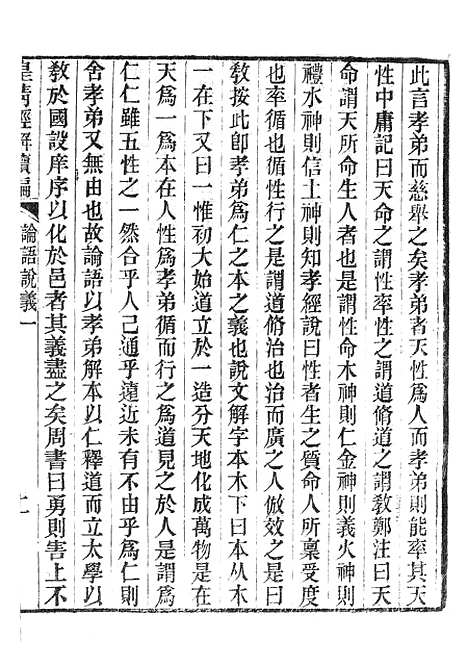 此言孝弟而慈舉之矣孝弟者天性爲人而孝弟則能率其天
性中庸記曰天命之謂性率性之謂道脩道之謂敎鄭注曰天
命謂天所命生人者也是謂性命木神則仁金神則義火神則
禮水神則信土神則知孝經說曰性者生之質命人所稟受度
也率循也循性行之是謂道脩治也治而廣之人倣效之是曰
敎按此卽孝弟爲仁之本之義也說文解字本木下曰本从木
一在下又曰一惟初大始道立於一造分天地化成萬物是在
天爲一爲本在人性爲孝弟循而行之爲道見之於人是謂爲
仁仁雖五性之一然合乎人己通乎遠近未有不由乎爲仁則
舍孝弟又無由也故論語以孝弟解本以仁釋道而立太學以
敎於國設庠序以化於邑者其義盡之矣周書曰勇則害上不
皇淸經解續編
論語說義一
十一